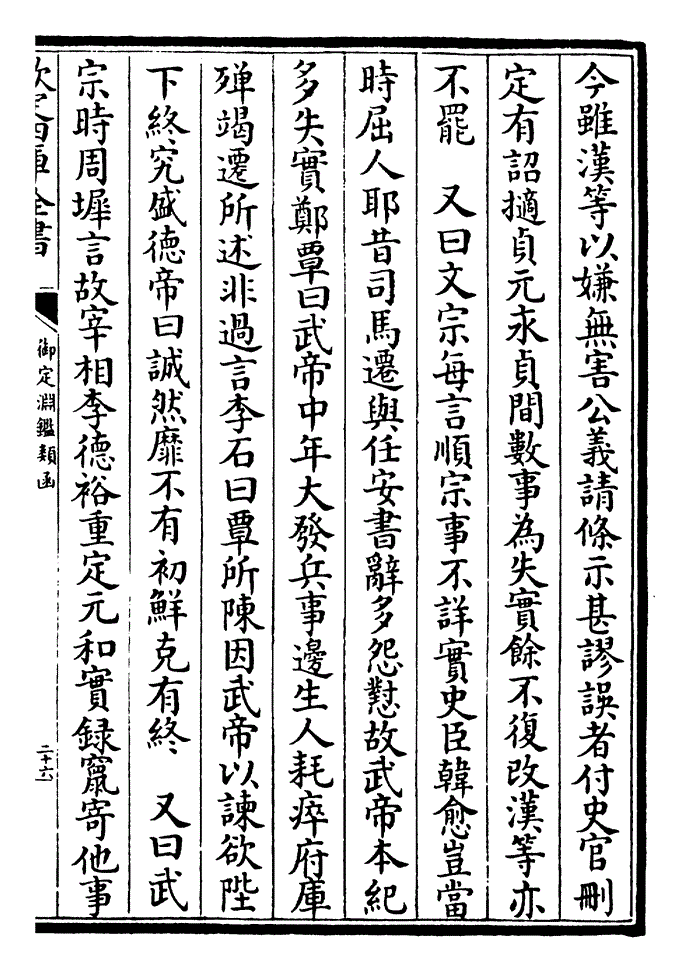 今雖漢等以嫌無害公義請條示甚謬誤者付史官刪
定有詔擿貞元永貞間數事為失實餘不復改漢等亦
不罷　又曰文宗每言順宗事不詳實史臣韓愈豈當
時屈人耶昔司馬遷與任安書辭多怨懟故武帝本紀
多失實鄭覃曰武帝中年大發兵事邊生人耗瘁府庫
殫竭遷所述非過言李石曰覃所陳因武帝以諫欲陛
下終究盛德帝曰誠然靡不有初鮮克有終　又曰武
宗時周墀言故宰相李德裕重定元和實録竄寄他事
欽定四庫全書
御定淵鑑類函
二十六